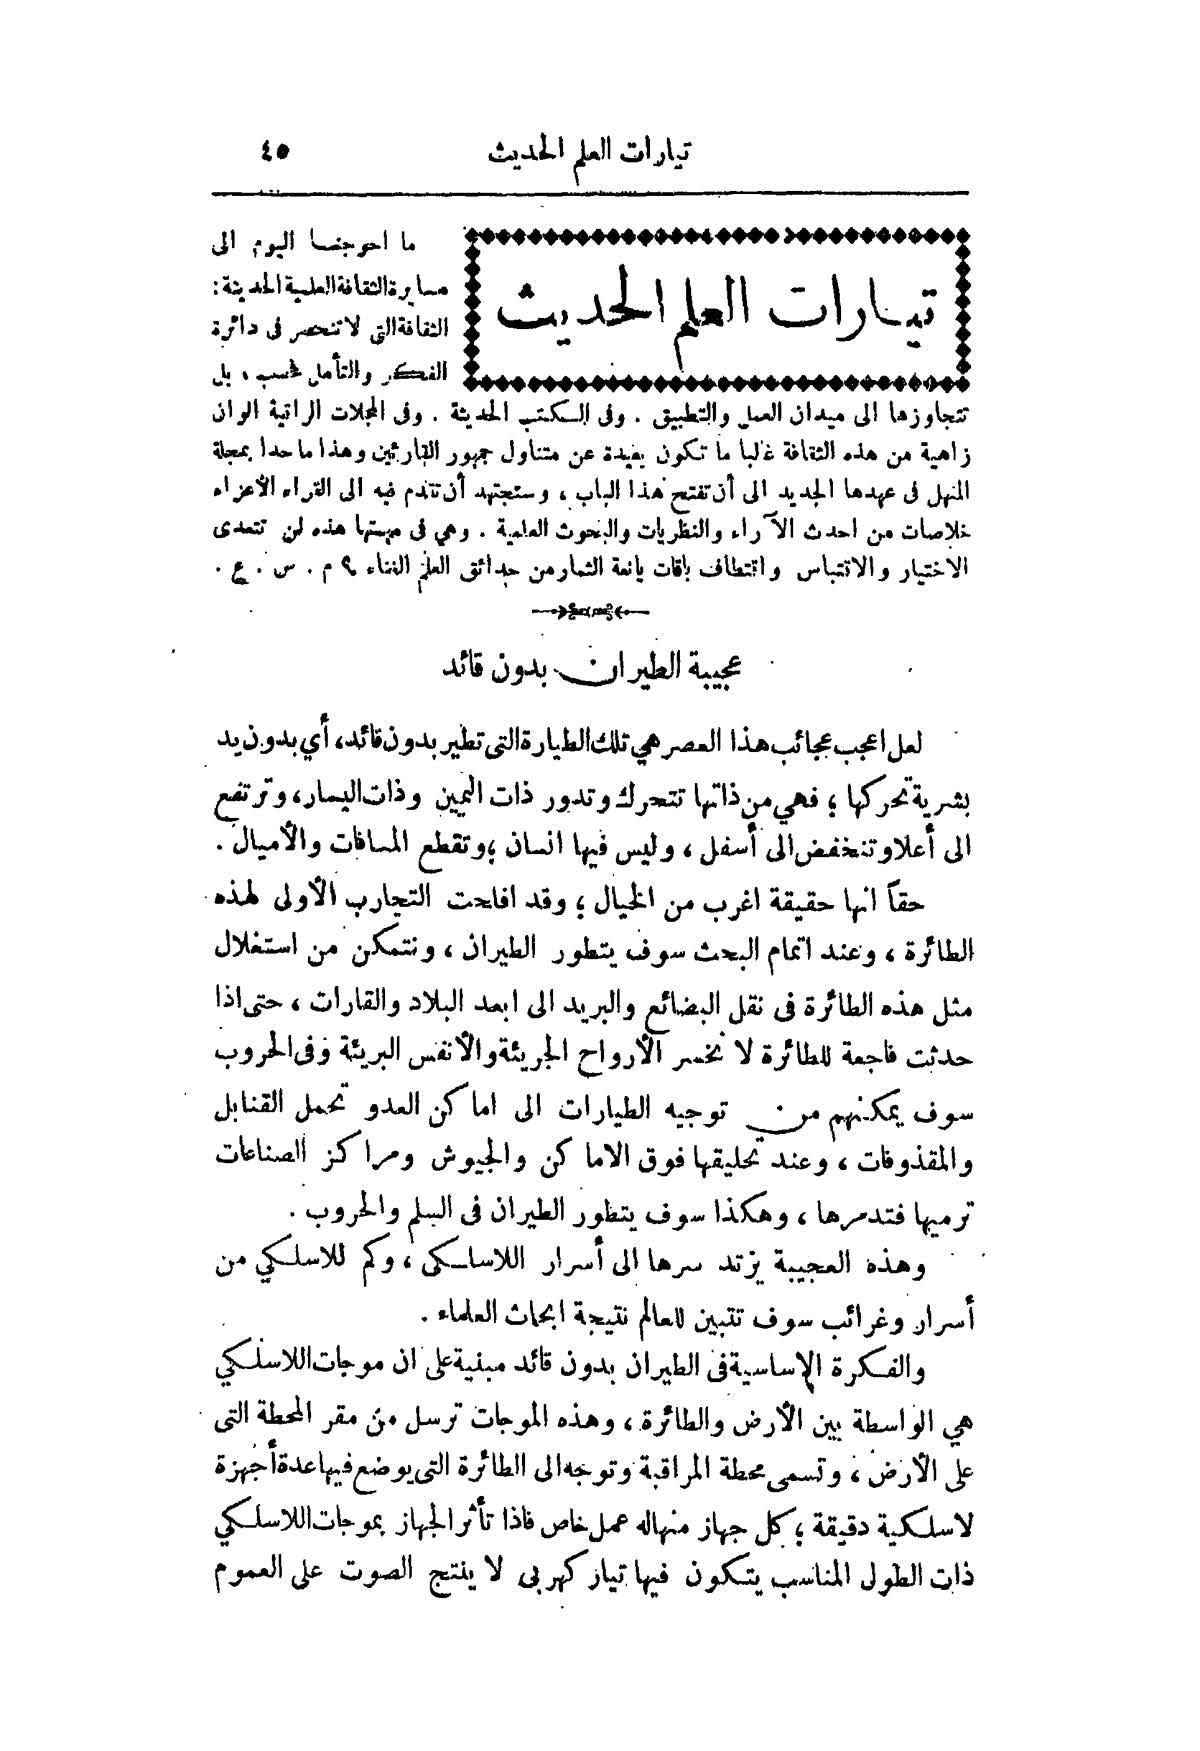 تيارات العلم الحديث ٤٥
تيارات العلم الحديث
ما احوجنا اليوم الى
مسايرة الثقافة العلمية الحديثة :
الثقافة التى لا تنحصر فى دائرة
الفكر والتأمل فحسب ، بل
تتجاوزها الى ميدان العمل والتطبيق . وفى الكتب الحديثة . وفى المجلات الراقية الوان
زاهية من هذه الثقافة غالبا ما تكون بعيدة عن متناول جمهور القارئين وهذا ما حدا بمجلة
المنهل فى عهدها الجديد الى أن تفتح هذا الباب ، وستجتهد أن تقدم فيه الى القراء الأعزاء
خلاصات من احدث الآراء والنظريات والبحوث العلمية . وهي فى مهمتها هذه لن تتعدى
الاختيار والاقتباس واقتطاف باقات يانعة الثمار من حدائق العلم الغناء ؟ م . س . ع .
عجيبة الطيران بدون قائد
لعل اعجب عجائب هذا العصر هي تلك الطيارة التى تطير بدون قائد، أي بدون يد
بشرية تحركها ؛ فهي من ذاتها تتحرك وتدور ذات اليمين وذات اليسار، وترتفع
الى أعلا وتنخفض الى أسفل ، وليس فيها انسان ؛ وتقطع المسافات والأميال .
حقاً انها حقيقة اغرب من الخيال ؛ وقد افلحت التجارب الأولى لهذه
الطائرة ، وعند اتمام البحث سوف يتطور الطيران ، ونتمكن من استغلال
مثل هذه الطائرة فى نقل البضائع والبريد الى ابعد البلاد والقارات ، حتى اذا
حدثت فاجعة للطائرة لا نخسر الأرواح الجريئة والأنفس البريئة وفى الحروب
سوف يمكنهم من توجيه الطيارات الى اماكن العدو تحمل القنابل
والمقذوفات ، وعند تحليقها فوق الاماكن والجيوش ومراكز الصناعات
ترميها فتدمرها ، وهكذا سوف يتطور الطيران فى السلم والحروب .
وهذه العجيبة يرتد سرها الى أسرار اللاسلكى ، وكم للاسلكي من
أسرار وغرائب سوف تتبين للعالم نتيجة ابحاث العلماء .
والفكرة الاساسية فى الطيران بدون قائد مبنية على ان موجات اللاسلكي
هي الواسطة بين الأرض والطائرة ، وهذه الموجات ترسل من مقر المحطة التى
على الأرض ، وتسمى محطة المراقبة وتوجه الى الطائرة التى يوضع فيها عدة أجهزة
لاسلكية دقيقة ؛ كل جهاز منها له عمل خاص فاذا تأثر الجهاز بموجات اللاسلكي
ذات الطول المناسب يتكون فيها تيار كهربى لا ينتج الصوت على العموم